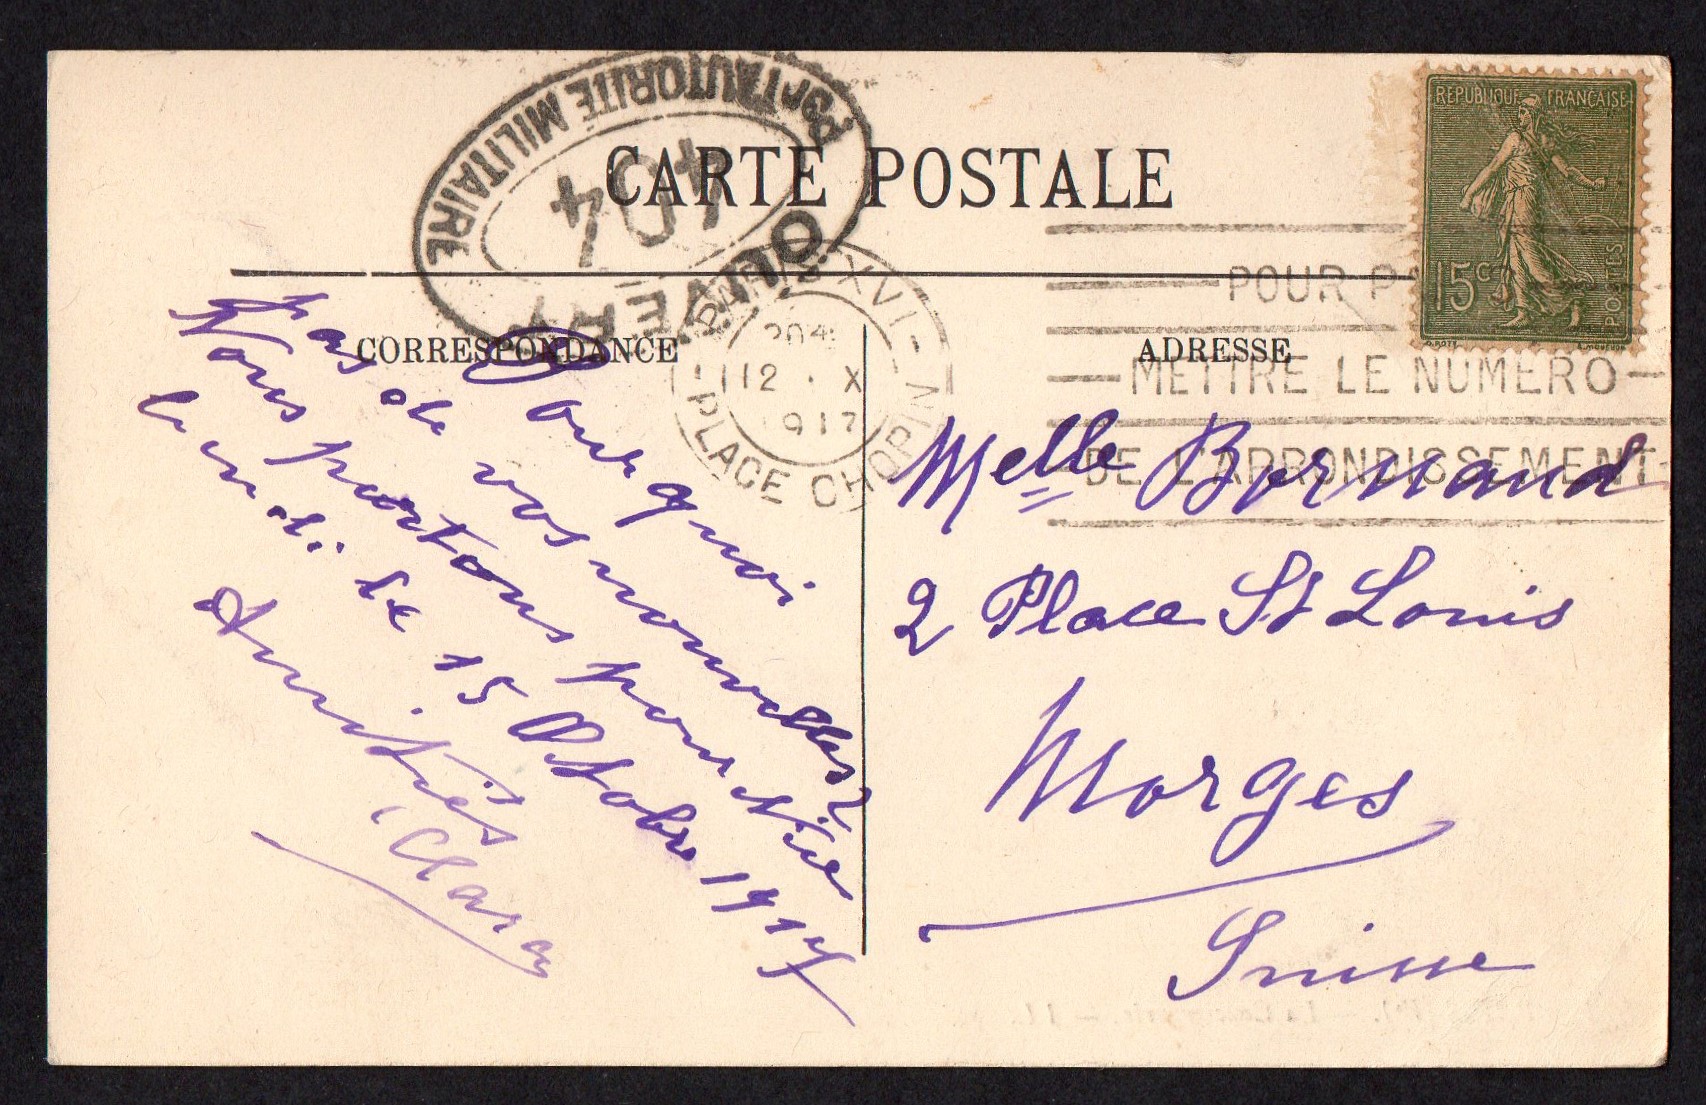 CARTE POSTALE
OUVERT
Par L'AUTORITÉ MILITAIRE
404
CORRESPONDANCE
ADRESSE
REPUBLIQUE FRANÇAISE
15c
POSTES
PARIS XVI
12 · X
1917
PLACE CHOPIN
POUR PA
METTRE LE NUMERO
DE L'ARRONDISSEMENT
Pourquoi
pas de vos nouvelles?
Nous partons pour Nice
lundi le 15 Octobre 1917
Amitiés
Clara
Melle Bornand
2 Place St Louis
Morges
Suisse